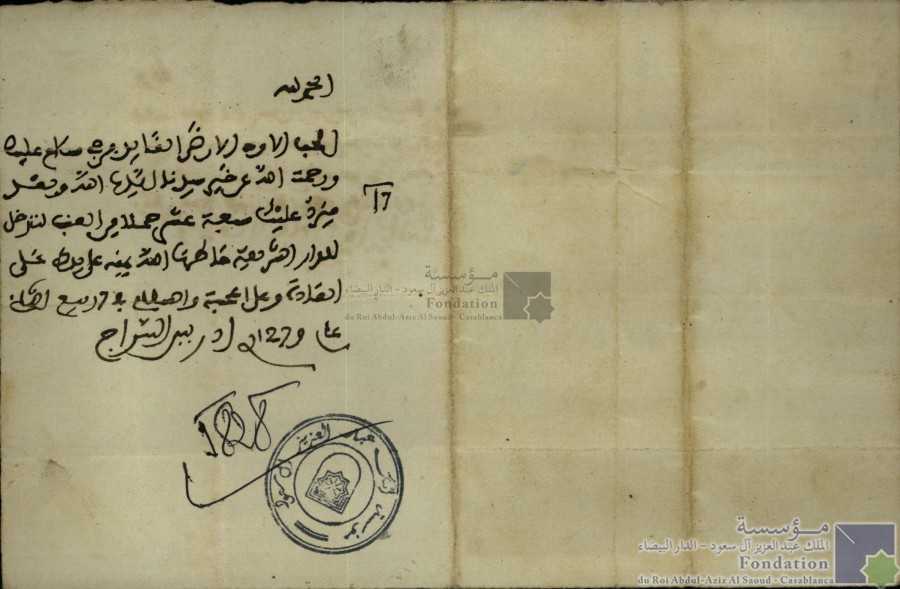 الحمد لله
المحب الاود الارضى القايد فرجي سلام عليك
ورحمة الله عن خير سيدنا ايده الله وبعد
فيرد عليك سبعة عشر حملا من العنب لتدخل
للدار الشريفة أطالها الله بمنه على يدك على
العادة وعلى المحبة والسلام في 7 ربيع الثاني
عام 1279 ادريس السراج
17
188
مؤسسة الملك عبد العزيز آل سعود
مؤسسة
الملك عبد العزيز آل سعود - الدار البيضاء
Fondation
du Roi Abdul-Aziz Al Saoud - Casablanca
مؤسسة
الملك عبد العزيز آل سعود - الدار البيضاء
Fondation
du Roi Abdul-Aziz Al Saoud - Casablanca